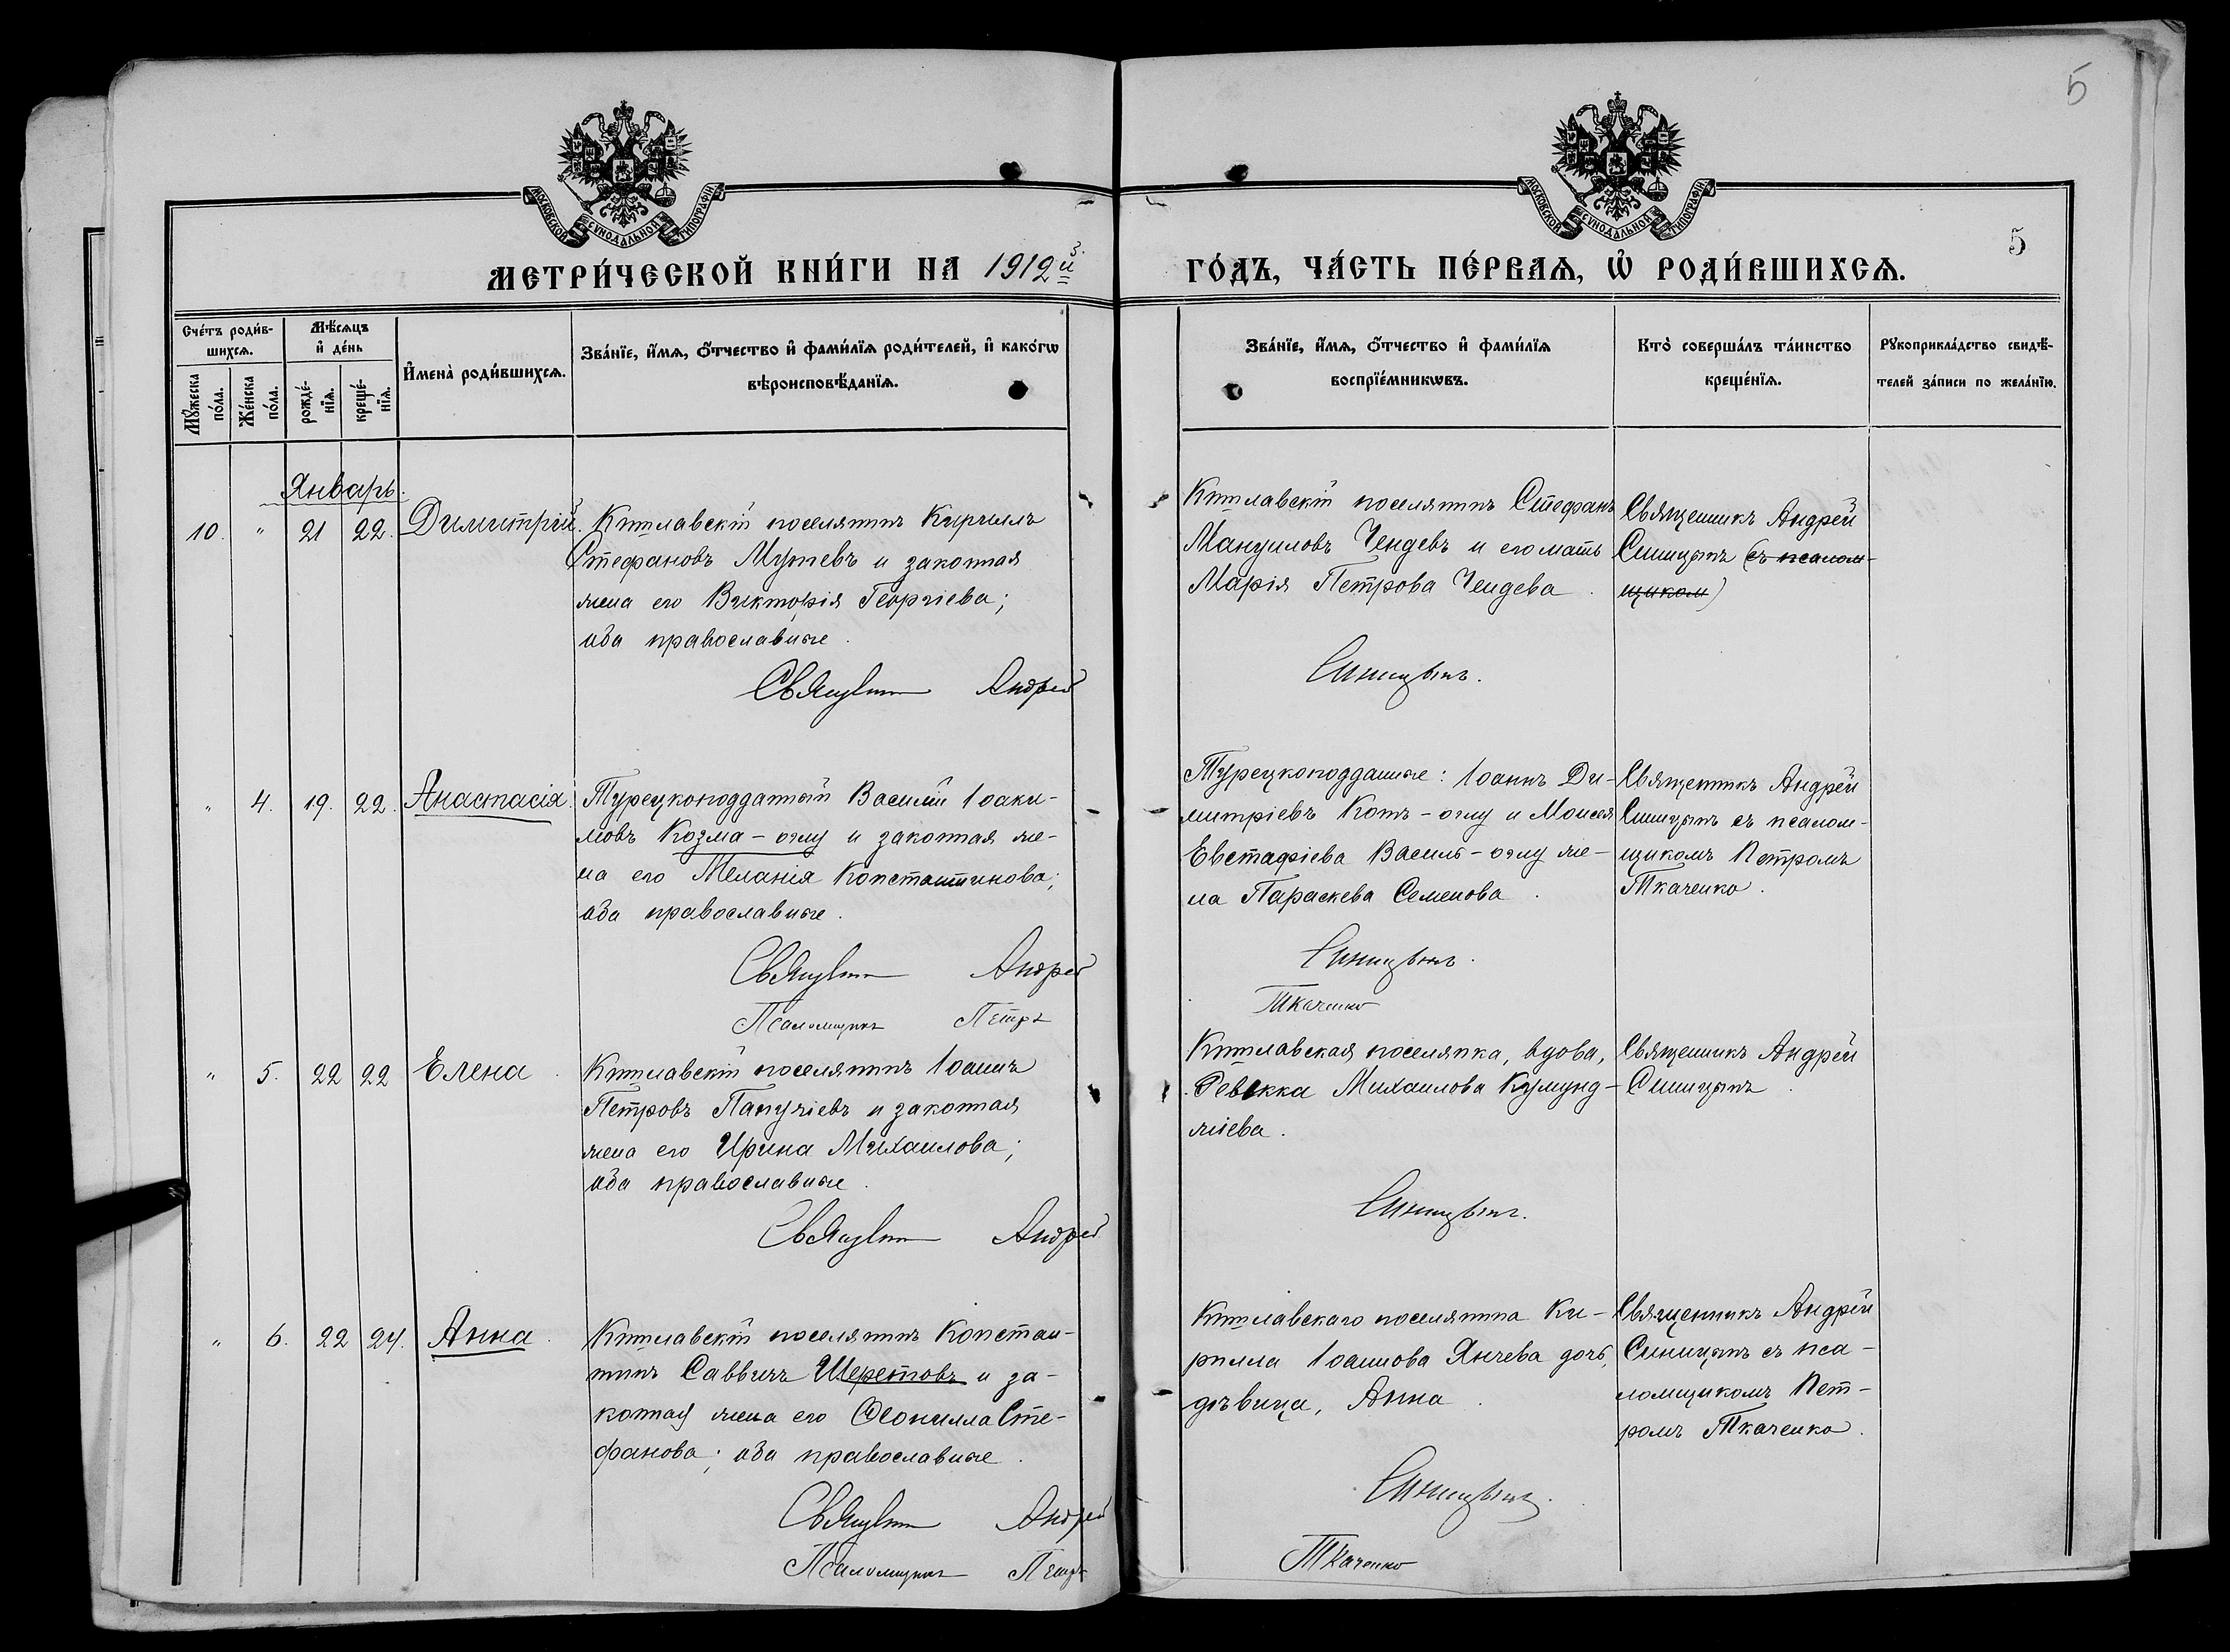 5
МОСКОВСКОЙ СѴНОДАЛЬНОЙ ТИПОГРАФІИ
МОСКОВСКОЙ СѴНОДАЛЬНОЙ ТИПОГРАФІИ
5
МЕТРИ́ЧЕСКОЙ КНИ́ГИ НА 1912й
ГО́ДЪ, ЧА́СТЬ ПЕ́РВАѦ, Ѡ҆ РОДИ́ВШИХСѦ.
Сче́тъ роди́в-
шихсѧ.
Мꙋ́жеска
по́ла.
Же́нска
по́ла.
Мѣ́сѧцъ
и҆ де́нь
рожде́-
нїѧ.
креще́-
нїѧ.
И҆мена̀ роди́вшихсѧ.
Зва́нїе, и҆́мѧ, ѻ҆́тчество и҆ фами́лїѧ роди́телей, и҆ како́гѡ
вѣроисповѣ́данїѧ.
Зва́нїе, и҆́мѧ, ѻ҆́тчество и҆ фами́лїѧ
воспрїе́мникѡвъ.
Кто̀ соверша́лъ та́инство
креще́нїѧ.
Рꙋкоприкла́дство свидѣ́-
телей за́писи по жела́нїю.
Январь.
10. " 21 22. Димитрій.
Китлавскій поселянинъ Кириллъ
Стефановъ Мутевъ и законная
жена его Викторія Георгіева;
оба православные.
Священникъ Андрей
Китлавскій поселянинъ Стефанъ
Мануиловъ Чендевъ и его мать
Марія Петрова Чендева.
Синицынъ.
Священникъ Андрей
Синицынъ (съ псалом-
щиком)
" 4. 19. 22. Анастасія.
Турецкоподданный Василій Іоаки-
мовъ Козма-оглу и законная же-
на его Меланія Константинова;
оба православные.
Священникъ Андрей
Псаломщикъ Петръ
Турецкоподданные: Іоаннъ Ди-
митріевъ Коть-оглу и Моисея
Евстафіева Василь-оглу же-
на Параскева Семенова.
Синицынъ.
Ткаченко
Священникъ Андрей
Синицынъ съ псалом-
щикомъ Петромъ
Ткаченко.
" 5. 22 22 Елена.
Китлавскій поселянинъ Іоаннъ
Петровъ Папужіевъ и законная
жена его Ирина Михаилова;
оба православные.
Священникъ Андрей
Китлавская поселянка, вдова,
Ревекка Михаилова Куюмунд-
жіева.
Синицынъ.
Священникъ Андрей
Синицынъ.
" 6. 22 24. Анна.
Китлавскій поселянинъ Констан-
тинъ Саввичъ Шеретовъ и за-
конная жена его Ѳеонилла Сте-
фанова; оба православные.
Священникъ Андрей
Псаломщикъ Петръ
Китлавскаго поселянина Ки-
рилла Іоаннова Янчева дочь,
дѣвица, Анна.
Синицынъ.
Ткаченко
Священникъ Андрей
Синицынъ съ пса-
ломщикомъ Пет-
ромъ Ткаченко.